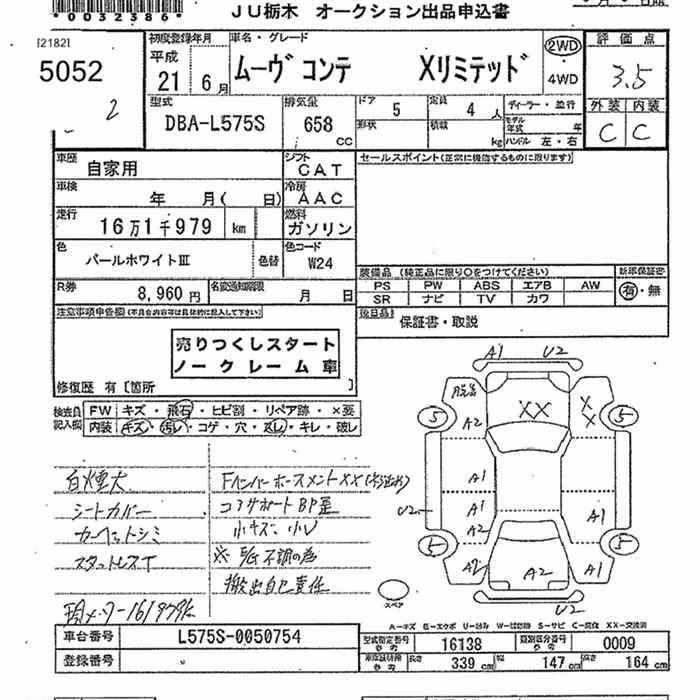 *0032386*
JU栃木 オークション出品申込書
[2182]
5052
2
初度登録年月
平成
21年 6月
車名・グレード
ムーヴ コンテ Xリミテッド
2WD
・
4WD
評価点
3.5
外装 内装
C C
型式
DBA-L575S
排気量
658 CC
ドア 5
定員 4 人
形状
積載 kg
ディーラー・並行
モデル年式 年
ハンドル 左・右
車歴
自家用
シフト
CAT
セールスポイント(正常に機能するものに限ります)
車検
年 月( 日)
冷房
AAC
走行
16万1千979 km
燃料
ガソリン
色
パールホワイトⅢ
色替
色コード
W24
装備品 (純正品に限り○をつけてください)
新車保証書
PS PW ABS エアB AW
SR ナビ TV カワ
有・無
R券
8,960円
名変通知期限
月 日
後日品
保証書・取説
注意事項申告欄(不具合内容等は具体的に記入して下さい)
売りつくしスタート
ノークレーム車
修復歴 有〔箇所 〕
検査員記入欄
FW キズ・飛石・ヒビ割・リペア跡・×要
内装 キズ・汚レ・コゲ・穴・スレ・キレ・破レ
白煙大
シートカバー
カーペットシミ
スタットレスT
現メーター161979k
コアサポートBP歪
小キズ、小U
※E/G不調の為
搬出自己責任
A1 U2
脱落
A2
XX
XX
5 5
A1
A1
U2
A2
A1
5 5
A2 A2 A1
U2
スペア
A-キズ E-エクボ U-凹み W-補修跡 S-サビ C-腐食 XX-交換済
車台番号 L575S-0050754
登録番号
型式指定番号 参考 16138
類別区分番号 参考 0009
長さ 339 cm
幅 147 cm
高さ 164 cm